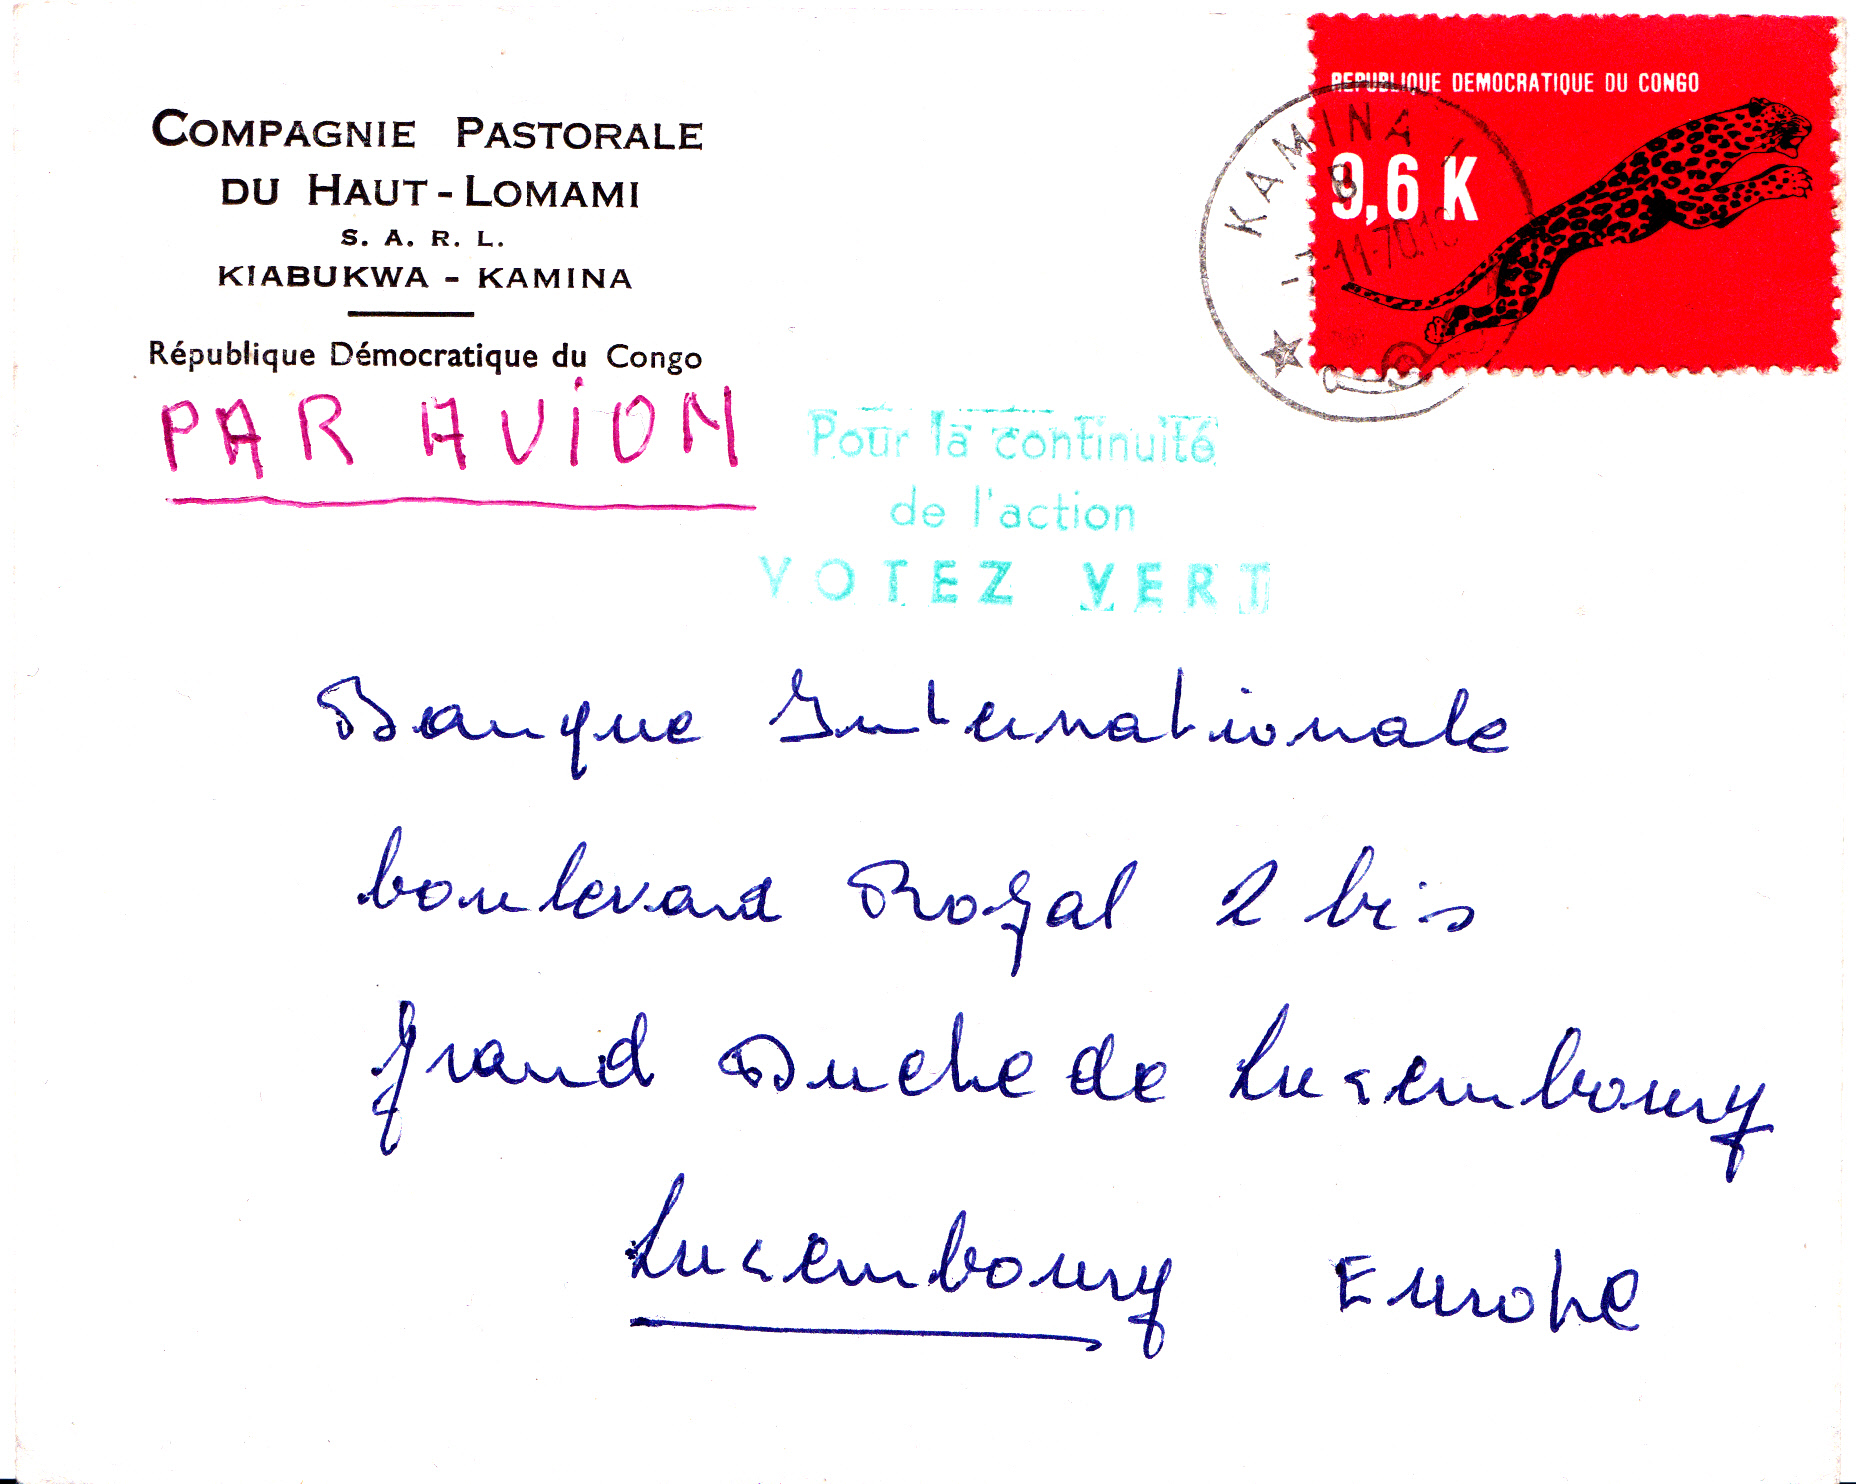 COMPAGNIE PASTORALE
DU HAUT-LOMAMI
S. A. R. L.
KIABUKWA - KAMINA
République Démocratique du Congo
REPUBLIQUE DEMOCRATIQUE DU CONGO
9,6 K
KAMINA 1
B
-11-70
PAR AVION
Pour la continuité
de l'action
VOTEZ VERT
Banque Internationale
boulevard Royal 2 bis
grand Duche de Luxembourg
Luxembourg Europe